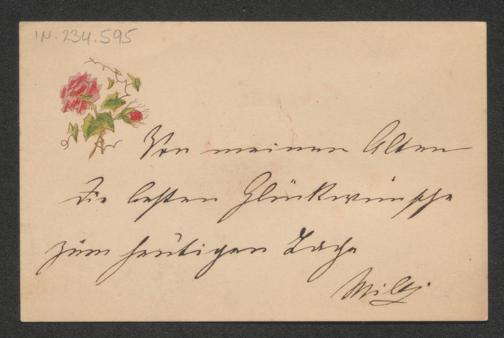 IN.234.595
Von meinen Alten
die besten Glückwünsche
zum heutigen Tage